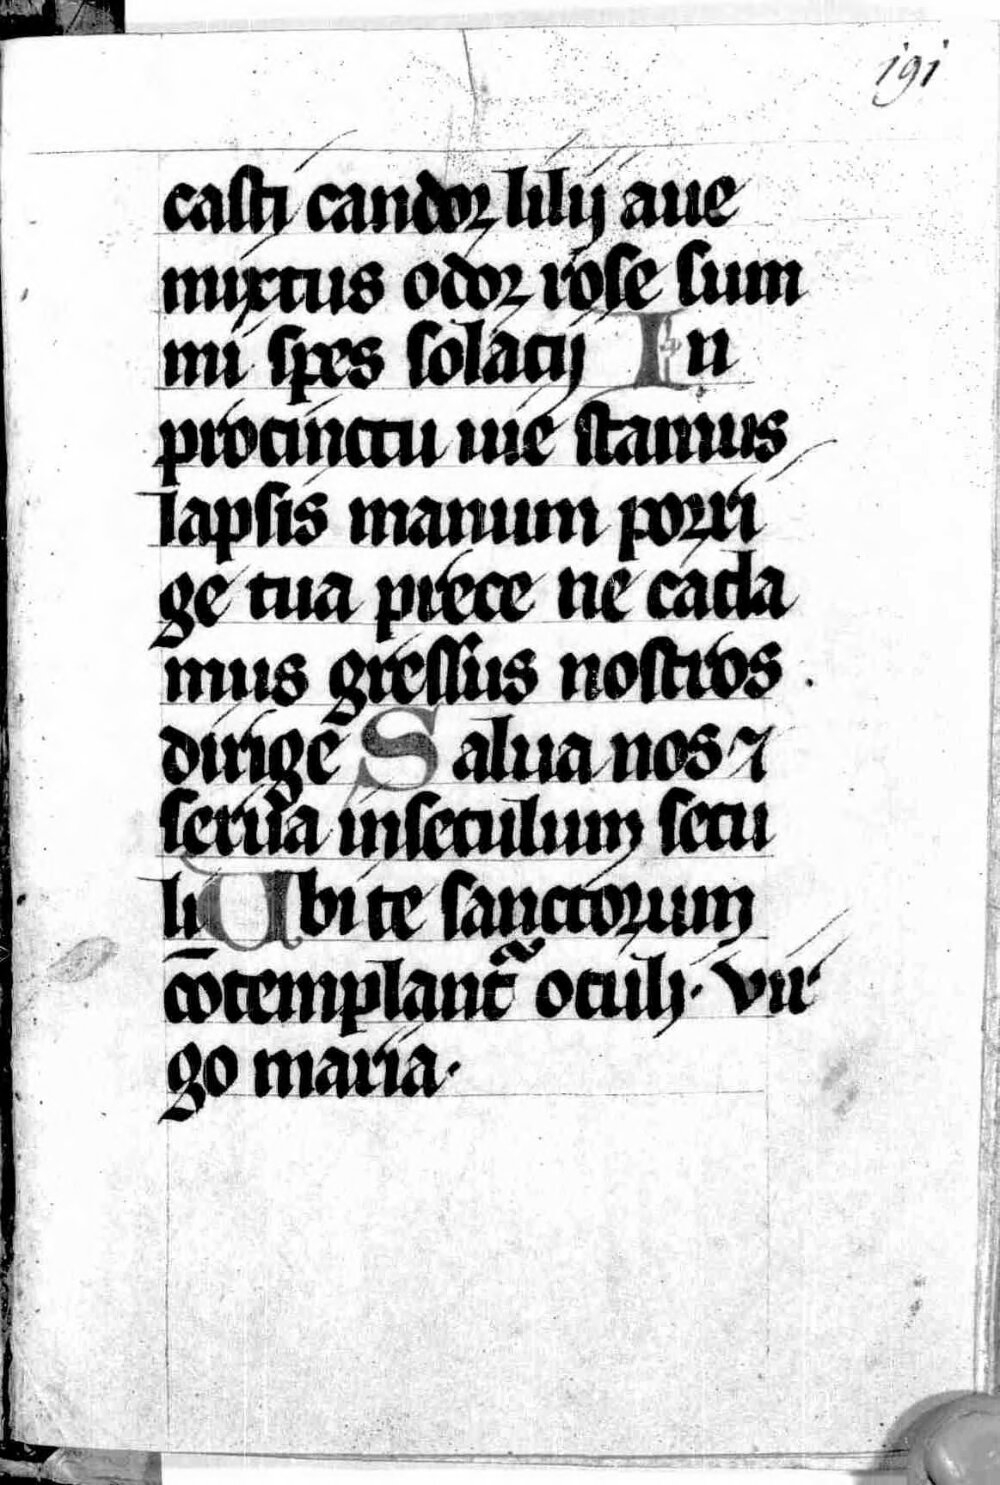 191
casti candor lilij aue
mixtus odor rose sum
mi spes solacij In
procinctu uie stamus
lapsis manum porri
ge tua prece ne cada
mus gressus nostros
dirige Salua nos ⁊
serua in seculum secu
li Ubi te sanctorum
cōtemplant᷑ oculi · vir
go maria ·